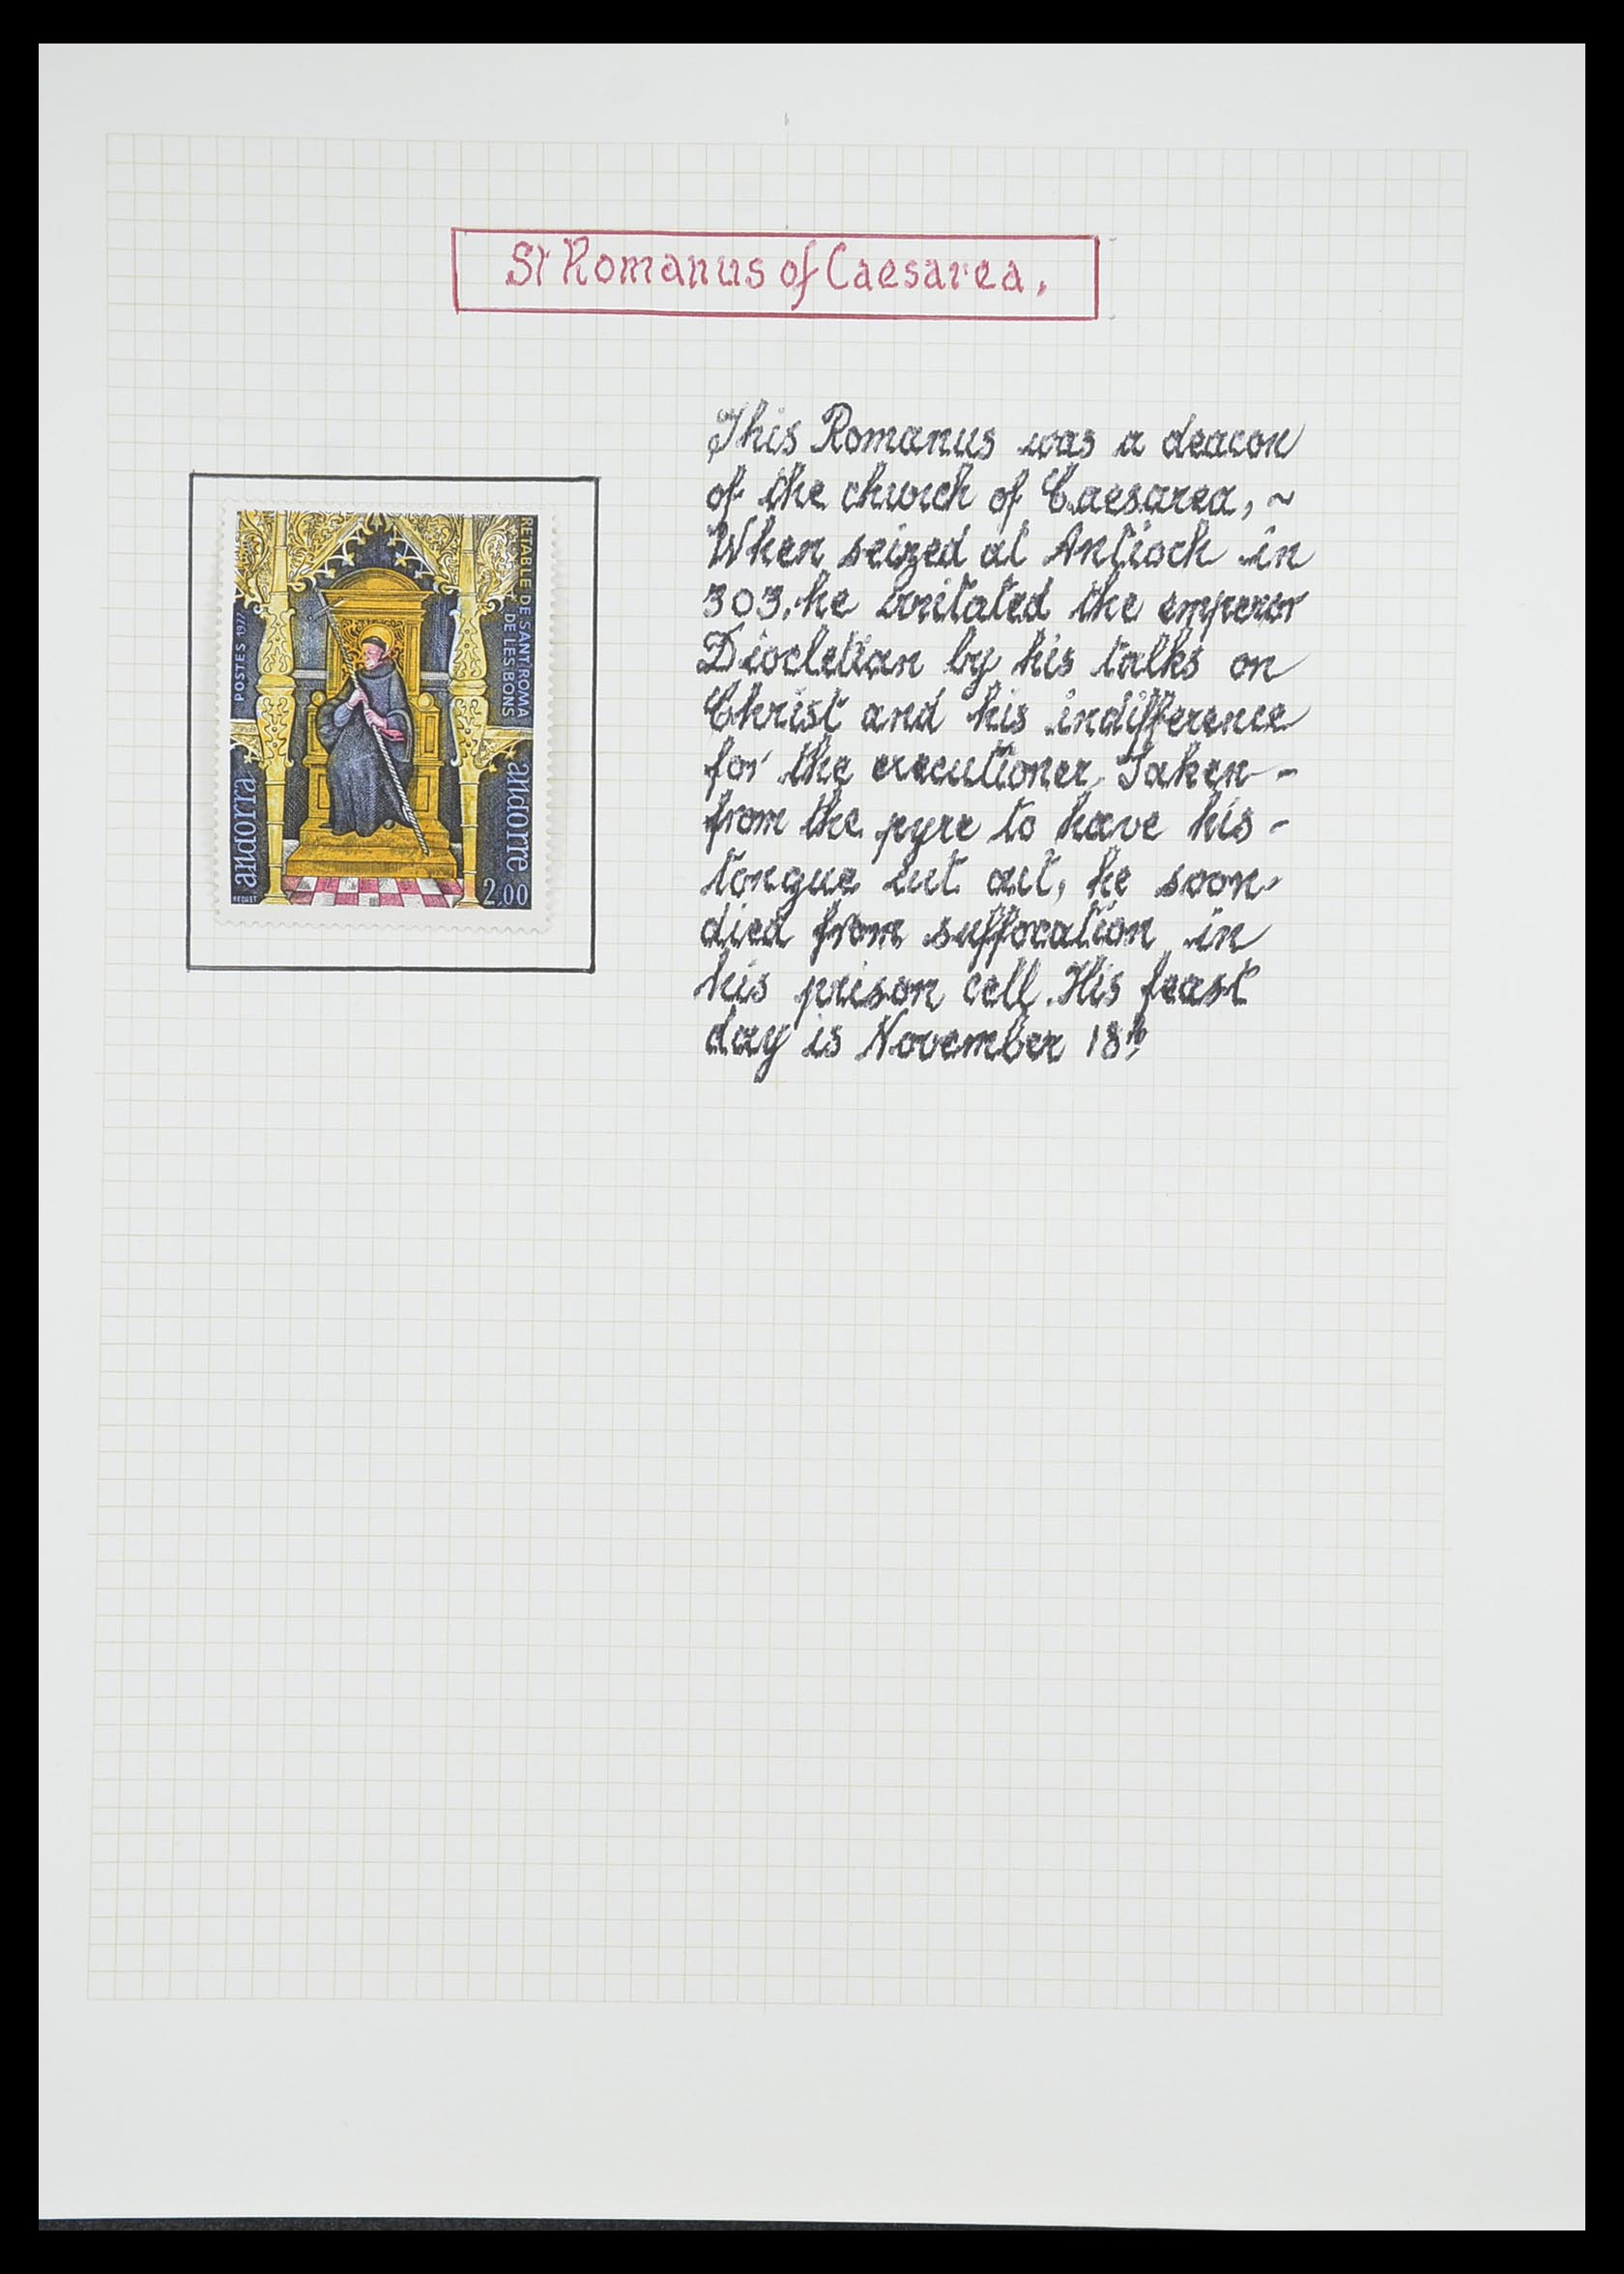 St Romanus of Caesarea.
This Romanus was a deacon
of the church of Caesarea, ~
When seized at Antioch in
303. he irritated the emperor
Diocletian by his talks on
Christ and his indifference
for the executioner. Taken -
from the pyre to have his -
tongue cut out, he soon -
died from suffocation in
his prison cell. His feast
day is November 18th
POSTES 1977
RETABLE DE SANT ROMA
DE LES BONS
andorra
andorre
2,00
BEQUET